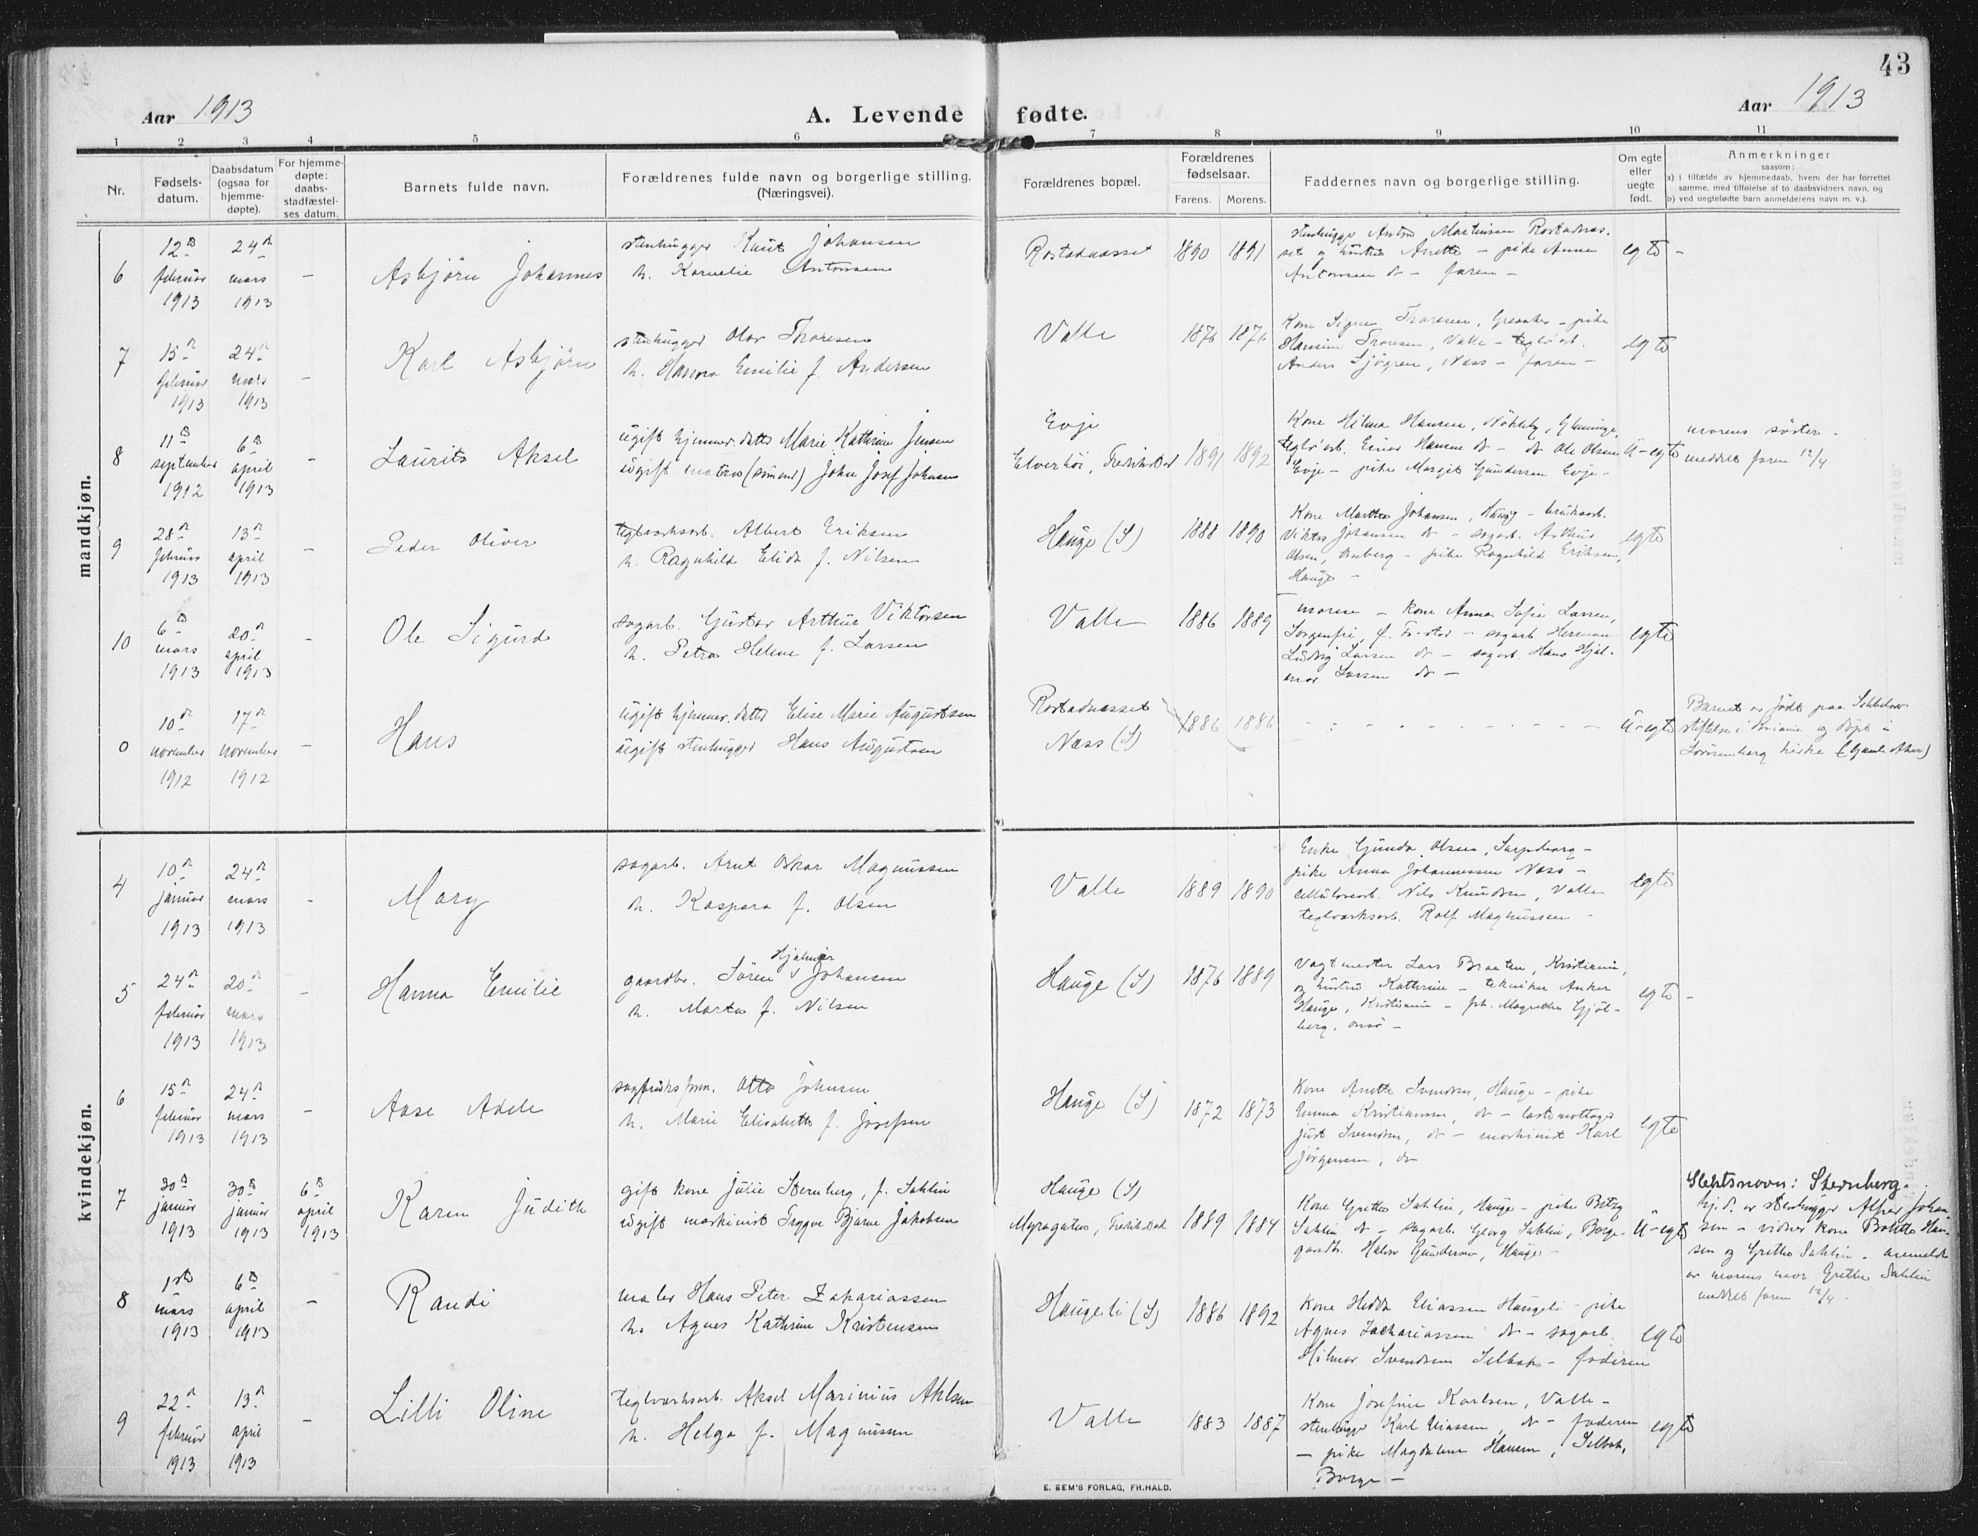 43
Aar 1913
A. Levende fødte.
Aar 1913
1 2 3 4 5 6 7 8 9 10 11
Nr.
Fødsels-
datum.
Daabsdatum
(ogsaa for
hjemme-
døpte).
For hjemme-
døpte:
daabs-
stadfæstel-
ses datum.
Barnets fulde navn.
Forældrenes fulde navn og borgerlige stilling.
(Næringsvei).
Forældrenes bopæl.
Forældrenes
fødselsaar.
Farens. Morens.
Faddernes navn og borgerlige stilling.
Om egte
eller
uegte
født.
Anmerkninger
saasom:
a) i tilfælde av hjemmedaab, hvem der har forrettet
samme, med tilføielse af to daabsvidners navn, og
b) ved uegtefødte barn anmelderens navn m. v.).
mandkjøn.
6
12 februar 1913
24 mars 1913
–
Asbjørn Johannes
stenhugger Knut Johansen
h. Kornelie Antonsen
Rostadnesset
1890 1891
stenhugger Anton Martinsen Rostadnes-
set og hustru Anette – pike Anna
Antonsen d – faren –
egte –
7
15 februar 1913
24 mars 1913
–
Karl Asbjørn
stenhugger Olav Thoresen
h. Hanna Emilie f. Andersen
Valle
1876 1876
Kone Signe Thoresen, Greaaker – pike
Hansine Thoresen, Valle – teglv. arb.
Anders Sjögren, Næss – faren –
egte
8
11 september 1912
6 april 1913
–
Laurits Aksel
ugift hjemmev. datter Marie Kathrine Jensen
ugift matros (sømand) John Josef Johnsen
Evje
Elverhöi, Fredrikstad
1891 1892
Kone Hilma Hansen, Nökleby, Glemminge,
teglv arb. Einar Hansen d – d Ole Olsen
Evje – pike Margit Gundersen Evje –
U-egte
morens søster –
meddelt faren 12/4
9
28 februar 1913
13 april 1913
–
Peder Oliver
teglverksarb. Albert Eriksen
h. Ragnhild Elida f. Nilsen
Hauge (S)
1888 1890
Kone Marthe Johansen, Hauge – bruksarb.
Viktor Johansen d – sagarb. Arthur
Olsen, – pike Ragnhild Eriksen,
Hauge –
egte
10
6 mars 1913
20 april 1913
–
Ole Sigurd
sagarb. Gustav Arthur Viktorsen
h. Petra Helene f. Larsen
Valle
1886 1889
moren – Kone Anna Sofie Larsen,
Sorgenfri, f. Fr-stad – sagarb Herman
Ludvig Larsen d – sagarb Hans Hjal-
mar Larsen d –
egte
0
10 november 1912
17 november 1912
–
Hans
ugift hjemmev. datter Elise Marie Augustsen
ugift stenhugger Hans Augustsen
Rostadnesset
Næss (S)
1886 1886
U-egte
Barnet er født paa
stiftelse i Kristiania og døpt i
kirke (Gamle Aker)
kvindekjøn.
4
10 januar 1913
24 mars 1913
–
Mary
sagarb. Arnt Oskar Magnussen
h. Kaspara f. Olsen
Valle
1889 1890
Enke Gunda Olsen, Sarpsborg –
pike Anna Johannessen Næss –
cellulosearb. Nils Knudsen, Valle
teglverksarb. Rolf Magnussen –
egte
5
24 februar 1913
20 mars 1913
–
Hanna Emilie
gaardbr. Sören Hjalmar Johansen
h. Marta f. Nilsen
Hauge (S)
1876 1889
Vagtmester Lars Braaten, Kristiania,
og hustru Kathrine – tekniker Anker
Hauge, Kristiania – frk. Magrethe Gjöl-
berg, Onsö –
egte –
6
15 februar 1913
24 mars 1913
–
Aase Adele
sagbruksform. Otto Johnsen
h. Marie Elisabeth f. Josefsen
Hauge (S)
1872 1873
Kone Anette Svendsen, Hauge – pike
Emma Kristiansen, d – lastemottager
Just Svendsen, d – maskinist Karl
Jörgensen, d
egte
7
30 januar 1913
30 januar 1913
6 april 1913
Karen Judith
gift kone Julie Sternberg, f. Sahlin
ugift maskinist Trygve Bjarne Jakobsen
Hauge (S)
Myragaten, Fredrikstad
1889 1884
Kone Grethe Sahlin, Hauge – pike Betzy
Sahlin d – sagarb Georg Sahlin, Borge –
gaardbr. Halvor Gundersen, Hauge –
U-egte
Slektsnavn: Sternberg.
hj.d. av stenhugger Alfred Johan-
sen – vidner kone Bolette Han-
sen og Grethe Sahlin. anmeldt
av morens mor Grethe Sahlin
meddelt faren 12/4 –
8
1ste mars 1913
6 april 1913
–
Randi
maler Hans Peter Zakariassen
h. Agnes Kathrine Kristensen
Haugeli (S)
1886 1892
Kone Hedda Eliassen Haugeli – pike
Agnes Zachariassen d – sagarb.
Hilmar Svendsen Selbak – faderen
egte
9
22 februar 1913
13 april 1913
–
Lilli Oline
teglverksarb. Aksel Marinius Ahlsen
h. Helga f. Magnussen
Valle
1883 1887
Kone Josefine Karlsen, Valle –
stenhugger Karl Eliassen, d – faderen
– pike Magdalene Hansen, Selbak,
Borge –
egte
E. SEM'S FORLAG, FR.HALD.